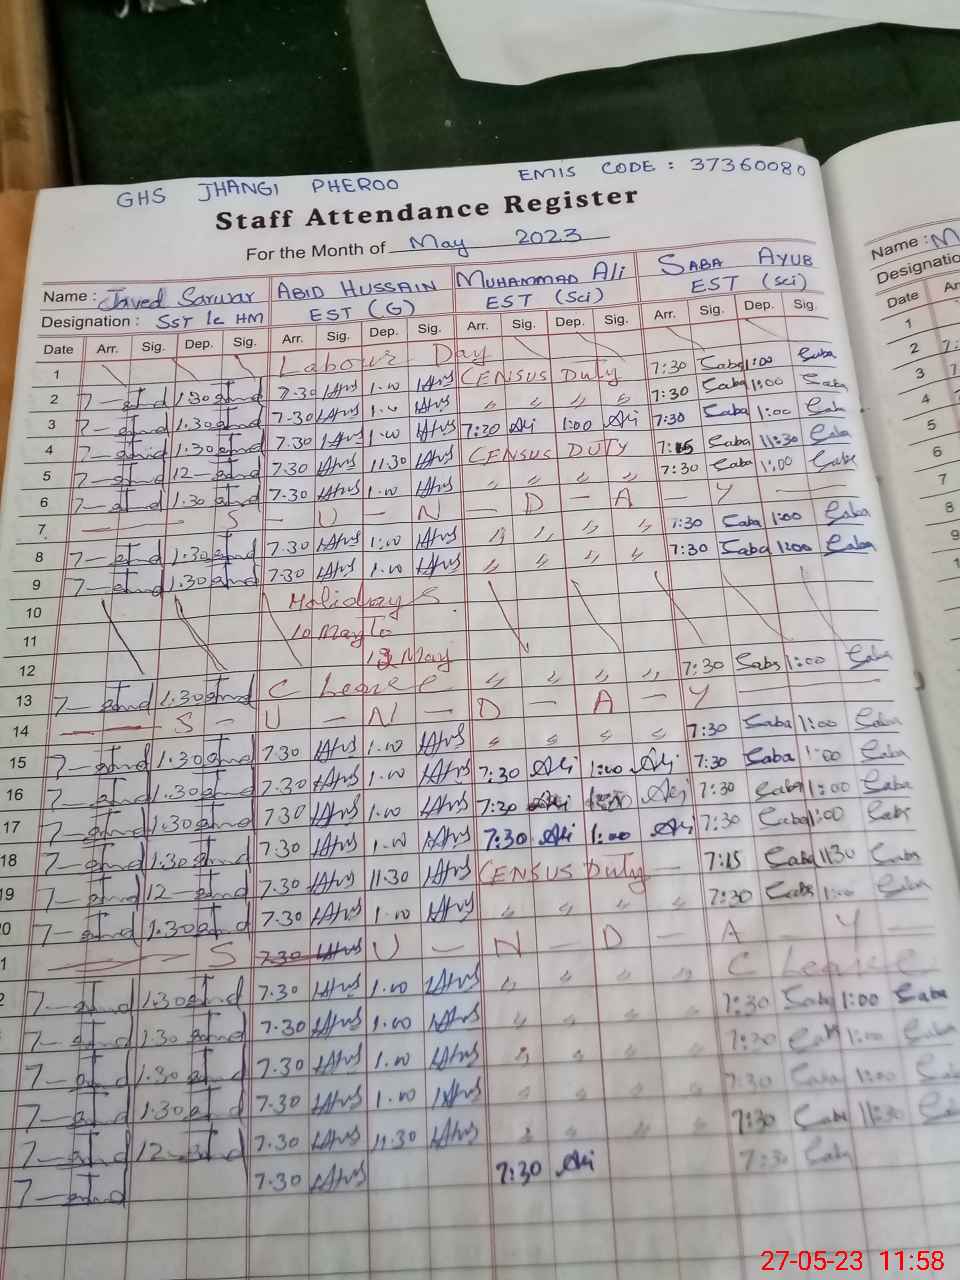 GHS JHANGI PHEROO EMIS CODE : 37360080
Staff Attendance Register
For the Month of May 2023
Name : Javed Sarwar ABID HUSSAIN MUHAMMAD Ali SABA AYUB
Designation : SST Ic HM EST (G) EST (Sci) EST (Sci)
Date Arr. Sig. Dep. Sig. Arr. Sig. Dep. Sig. Arr. Sig. Dep. Sig. Arr. Sig. Dep. Sig.
1 Labour Day
2 7 1.30 7.30 1.00 CENSUS Duty 7:30 Saba 1:00 Saba
3 7 1.30 7.30 1.00 " " " " 7:30 Saba 1:00 Saba
4 7 1.30 7.30 1.00 7:30 Ali 1:00 Ali 7:30 Saba 1:00 Saba
5 7 12 7.30 11.30 CENSUS DUTY 7:15 Saba 11:30 Saba
6 7 1.30 7.30 1.00 " " " " 7:30 Saba 1:00 Saba
7 S - U - N - D - A - Y
8 7 1.30 7.30 1:00 " " " " 7:30 Saba 1:00 Saba
9 7 1.30 7.30 1.00 " " " " 7:30 Saba 1:00 Saba
10 Holidays
11 10 May To
12 12 May
13 7 1.30 C Leave " " " " 7:30 Saba 1:00 Saba
14 S - U - N - D - A - Y
15 7 1.30 7.30 1.00 " " " " 7:30 Saba 1:00 Saba
16 7 1.30 7.30 1.00 7:30 Ali 1:00 Ali 7:30 Saba 1:00 Saba
17 7 1.30 7.30 1.00 7:30 Ali Ali 7:30 Saba 1:00 Saba
18 7 1.30 7.30 1.00 7:30 Ali 1:00 Ali 7:30 Saba 1:00 Saba
19 7 12 7.30 11.30 CENSUS Duty 7:15 Saba 11:30 Saba
0 7 1.30 7.30 1.00 " " " " 7:30 Saba 1:00 Saba
1 S 7.30 U - N - D - A - Y
2 7 1.30 7.30 1.00 " " " " C Leave
7 1.30 7.30 1.00 " " " " 7:30 Saba 1:00 Saba
7 1.30 7.30 1.00 " " " " 7:30 Saba 1:00 Saba
7 1.30 7.30 1.00 " " " " 7:30 Saba 1:00 Saba
7 12 7.30 11.30 " " " " 7:30 Saba 11:30
7 7.30 7:30 Ali 7:30 Saba
Name : M
Designatio
Date
1
2
3
4
5
6
7
8
9
27-05-23 11:58